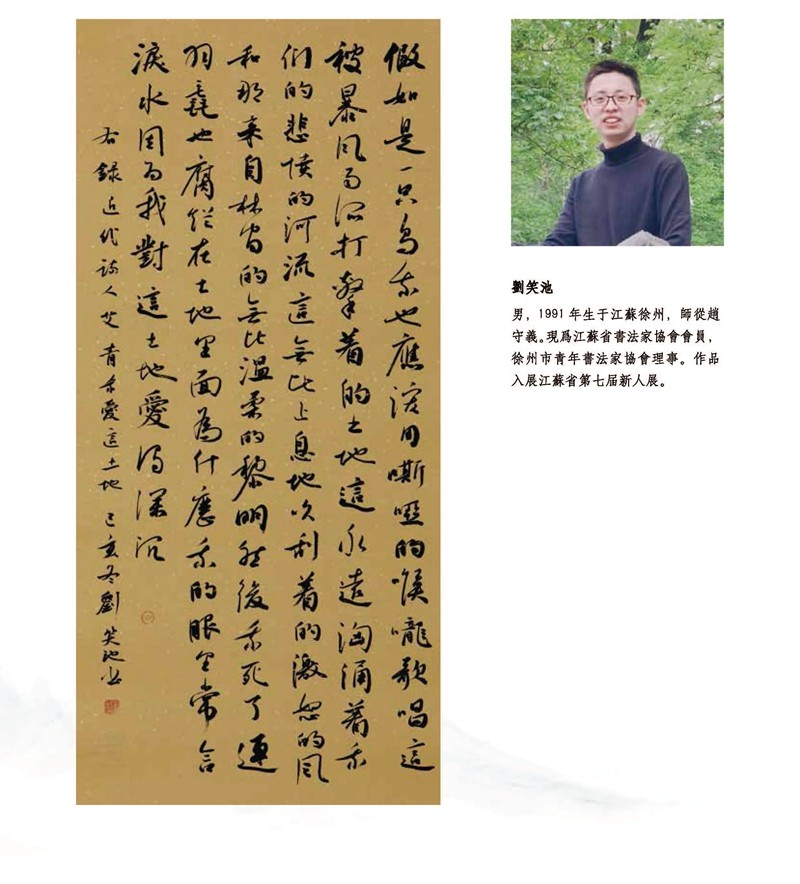 假如是一只鳥我也應該用嘶啞的喉嚨歌唱這
被暴風雨所打擊着的土地這永遠洶涌着我
们的悲憤的河流這無比止息地吹刮着的激怒的風
和那來自林間的無比溫柔的黎明然後我死了連
羽毛也腐爛在土地里面為什麼我的眼里常含
淚水因為我對這土地愛得深沉
右録近代詩人艾青我愛這土地 己亥冬劉笑池书
劉笑池
男，1991年生于江蘇徐州，師從趙
守義。現爲江蘇省書法家協會會員，
徐州市青年書法家協會理事。作品
入展江蘇省第七届新人展。